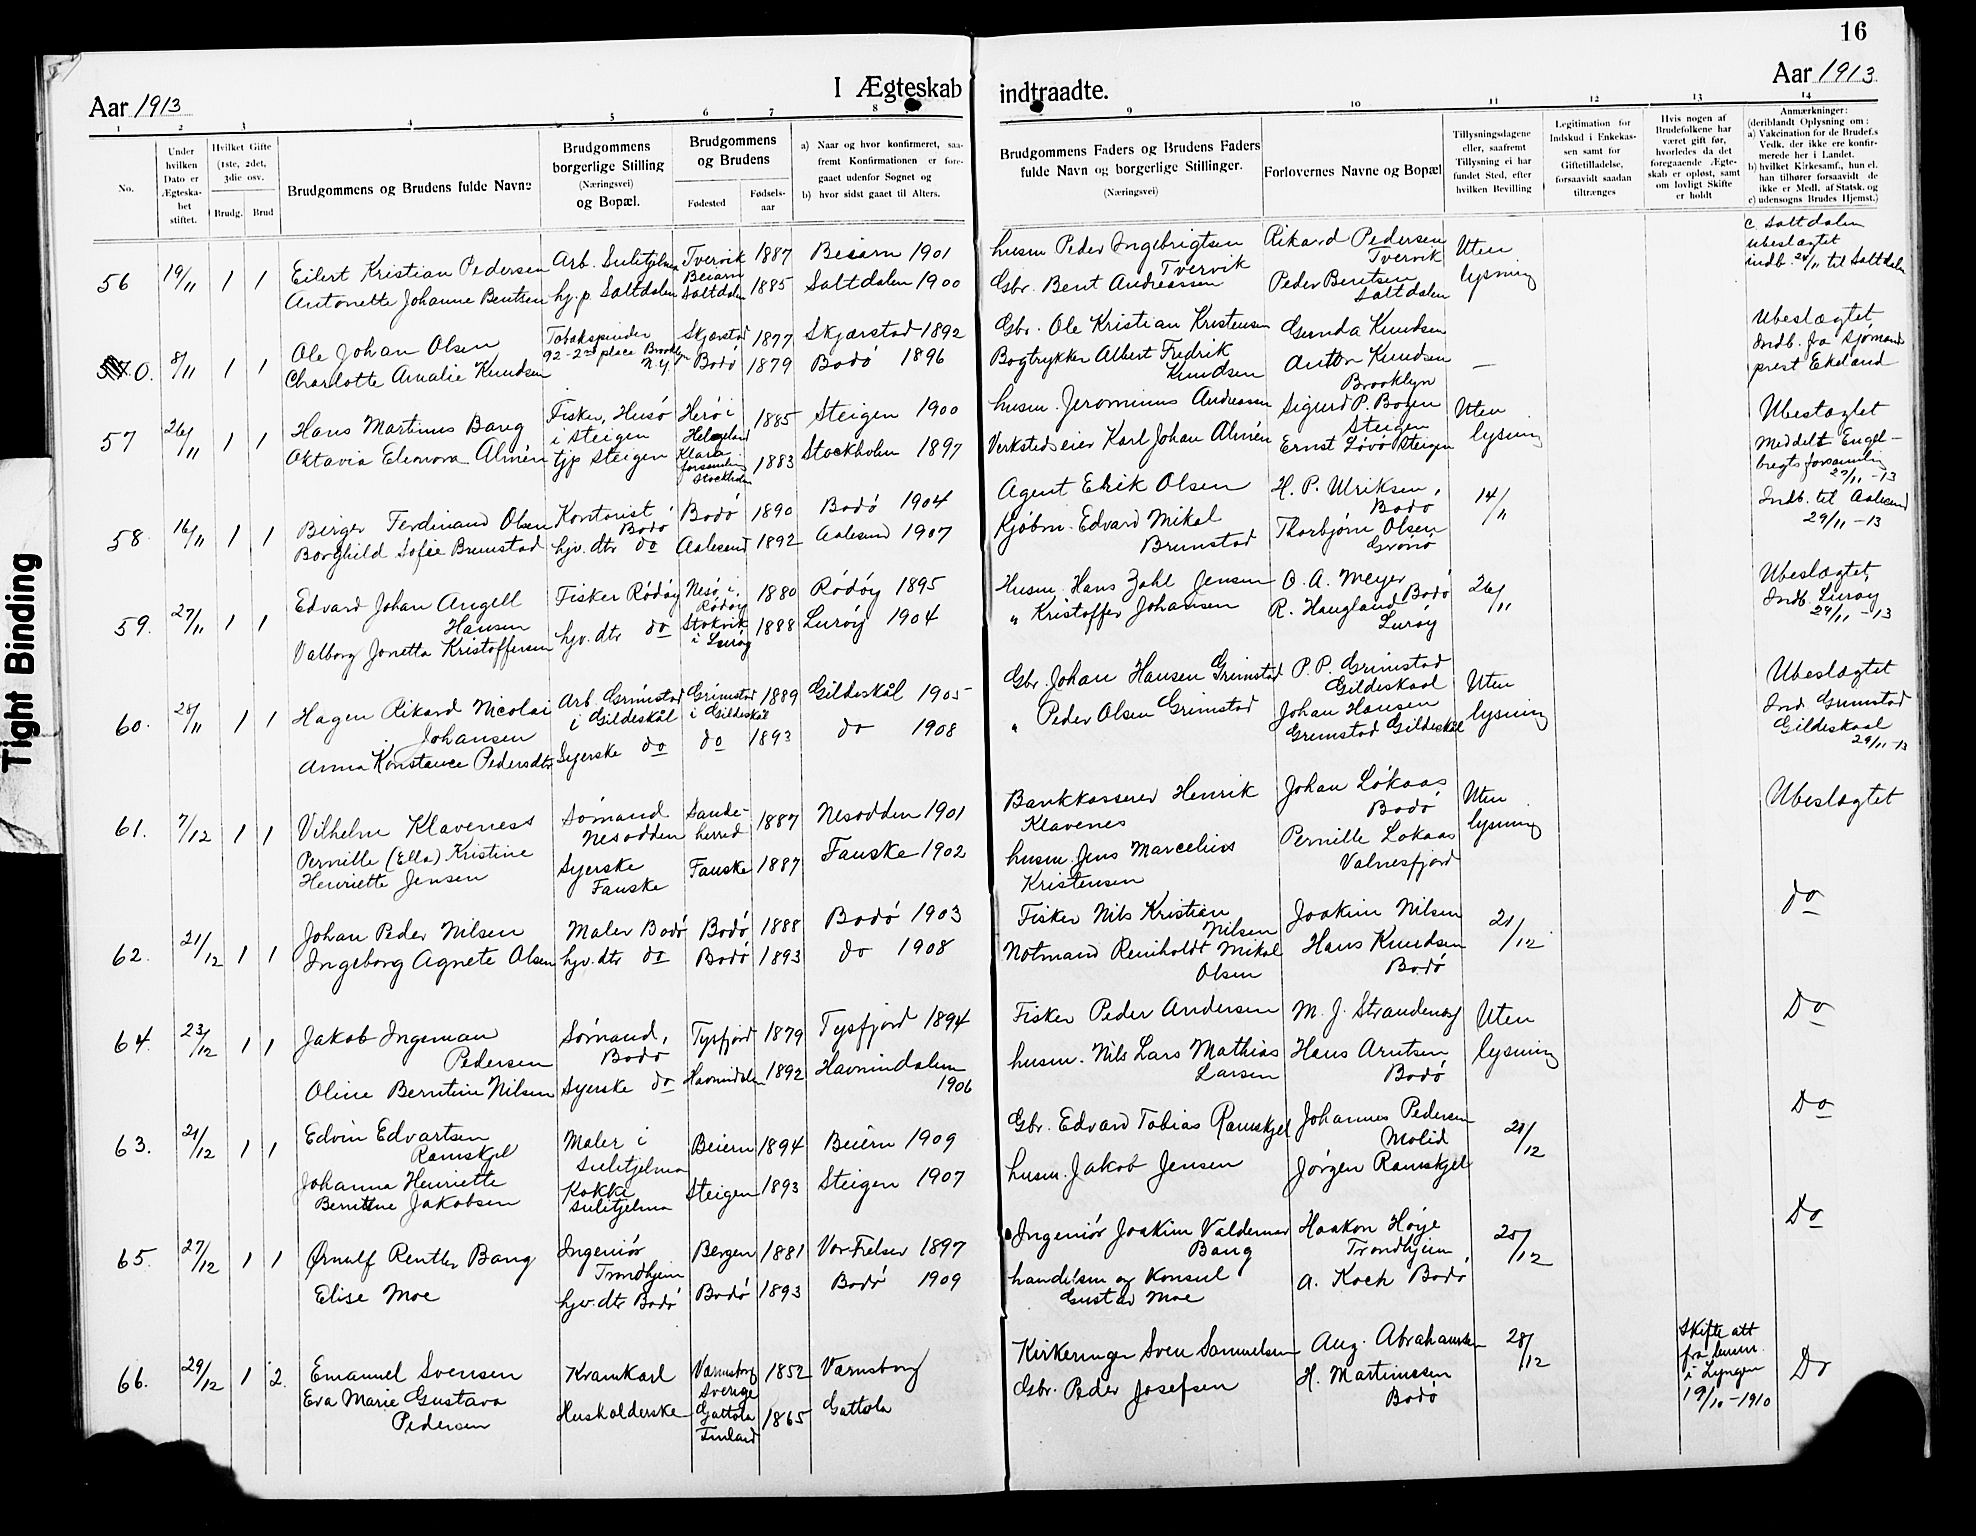 16
Aar 1913
I Ægteskab indtraadte.
Aar 1913
1 2 3 4 5 6 7 8 9 10 11 12 13 14
No.
Under hvilken Dato er Ægteskabet stiftet.
Hvilket Gifte (1ste, 2det, 3die osv.
Brudg. Brud
Brudgommens og Brudens fulde Navne
Brudgommens borgerlige Stilling (Næringsvei) og Bopæl.
Brudgommens og Brudens
Fødested
Fødselsaar
a) Naar og hvor konfirmeret, saafremt Konfirmationen er foregaaet udenfor Sognet og
b) hvor sidst gaaet til Alters.
Brudgommens Faders og Brudens Faders fulde Navn og borgerlige Stillinger. (Næringsvei)
Forlovernes Navne og Bopæl
Tillysningsdagene eller, saafremt Tillysning ei har fundet Sted, efter hvilken Bevilling
Legitimation for Indskud i Enkekassen samt for Giftetilladelse, forsaavidt saadan tiltrænges
Hvis nogen af Brudefolkene har været gift før, hvorledes da det foregaaende Ægteskab er opløst, samt om lovligt Skifte er holdt
Anmærkninger: (deriblandt Oplysning om: a) Vakcination for de Brudef.s Vedk. der ikke ere konfirmerede her i Landet. b) hvilket Kirkesamf., hun el. han tilhører forsaavidt de ikke er Medl. af Statsk. og c) udensogns Brudes Hjemst.)
56 19/11 1 1 Eilert Kristian Pedersen Arb. Sulitjelma Tvervik Beiarn 1887 Beiarn 1901 husm Peder Ingebrigtsen Tvervik Rikard Pedersen Tvervik Uten lysning c Saltdalen ubeslægtet
Antonette Johanne Bentsen hj. p Saltdalen Saltdalen 1885 Saltdalen 1900 Gbr. Bent Andreassen Peder Bentsen Saltdalen indb. 24/11 til Saltdalen
0. 8/11 1 1 Ole Johan Olsen Tobakspinder 92-2nd place Brooklyn N.Y. Skjærstad 1877 Skjærstad 1892 Gbr. Ole Kristian Kristensen Gunda Knudsen — Ubeslægtet
Charlotte Amalie Knudsen Bodø 1879 Bodø 1896 Bogtrykker Albert Fredrik Knudsen Anton Knudsen Brooklyn Indb. fa Sjømandsprest Ekeland
57 26/11 1 1 Hans Martinus Bang Fisker, Husø i Steigen Herø i Helgeland 1885 Steigen 1900 husm. Jerominus Andreassen Sigurd P. Bogen Steigen Uten lysning Ubeslægtet
Oktavia Eleonora Almén tjp Steigen Klara forsamling Stockholm 1883 Stockholm 1897 Verkstedseier Karl Johan Almén Ernst Løvø Steigen Meddelt Engelbregts forsamlin 27/11-13
58 16/11 1 1 Birger Ferdinand Olsen Kontorist Bodø Bodø 1890 Bodø 1904 Agent Erik Olsen H. P. Ulriksen, Bodø 14/11 Indb. til Aalesund
Borghild Sofie Brunstad hjv. dtr do Aalesund 1892 Aalesund 1907 Kjøbm. Edvard Mikal Brunstad Thorbjørn Olsen Grønø 29/11-13
59. 27/11 1 1 Edvard Johan Angell Hansen Fisker Rødøy Nesø i Rødøy 1880 Rødøy 1895 Husm. Hans Zahl Jensen O. A. Meyer Bodø 26/11 Ubeslægtet,
Valborg Jonetta Kristoffersen hjv. dtr do Stokvik i Lurøy 1888 Lurøy 1904 " Kristoffer Johansen R. Haugland Lurøy Indb. Lurøy 29/11-13
60. 28/11 1 1 Hagen Rikard Nicolai Johansen Arb. Grimstad i Gildeskål Grimstad i Gildeskål 1889 Gildeskål 1905 Gbr. Johan Hansen Grimstad P. P. Grimstad Gildeskaal Uten lysning Ubeslægtet
Anna Konstance Pedersdtr Syerske do do 1893 do 1908 " Peder Olsen Grimstad Johan Hansen Grimstad Gildeskål Ind. Grimstad Gildeskaal 29/11-13
61. 7/12 1 1 Vilhelm Klaveness Sømand Nesodden Sandeherred 1887 Nesodden 1901 Bankkasserer Henrik Klavenes Johan Løkaas Bodø Uten lysning Ubeslægtet
Pernille (Ella) Kristine Henriette Jensen Syerske Fauske Fauske 1887 Fauske 1902 husm. Jens Marcelius Kristensen Pernille Løkaas Valnesfjord
62. 21/12 1 1 Johan Peder Nilsen Maler Bodø Bodø 1888 Bodø 1903 Fisker Nils Kristian Nilsen Joakim Nilsen 21/12 do
Ingeborg Agnete Olsen hjv. dtr do Bodø 1893 do 1908 Notmand Reinholdt Mikal Olsen Hans Knudsen Bodø
64. 23/12 1 1 Jakob Ingeman Pedersen Sømand, Bodø Tysfjord 1879 Tysfjord 1894 Fisker Peder Andersen M. J. Strandenes Uten lysning Do
Oline Berntine Nilsen Syerske do Havnindalen 1892 Havnindalen 1906 husm. Nils Lars Mathias Larsen Hans Arntsen Bodø
63. 21/12 1 1 Edvin Edvartsen Ramskjel Maler i Sulitjelma Beiern 1894 Beiern 1909 Gbr. Edvard Tobias Ramskjel Johannes Pedersen Molid 21/12 Do
Johanna Henriette Berntine Jakobsen Kokke Sulitjelma Steigen 1893 Steigen 1907 husm. Jakob Jensen Jørgen Ramskjel
65. 27/12 1 1 Ørnulf Rentler Bang Ingeniør Trondhjem Bergen 1881 Vor Frelser 1897 Ingeniør Joakim Valdemar Bang Haakon Høye Trondhjem 20/12 Do
Elise Moe hjv. dtr Bodø Bodø 1893 Bodø 1909 handelsm og Konsul Gustav Moe A. Koch Bodø
66. 29/12 1 2. Emanuel Svensen Kramkarl Varnsborg Sverige 1852 Varnsborg Kirkeringer Sven Samuelsen Aug. Abrahamsen 28/12 Skifte att fra lensm. i Lyngen 19/10-1910 Do
Eva Marie Gustava Pedersen Husholderske Gattola Finland 1865 Gattola Gbr. Peder Josefsen H. Martinussen Bodø
Tight Binding